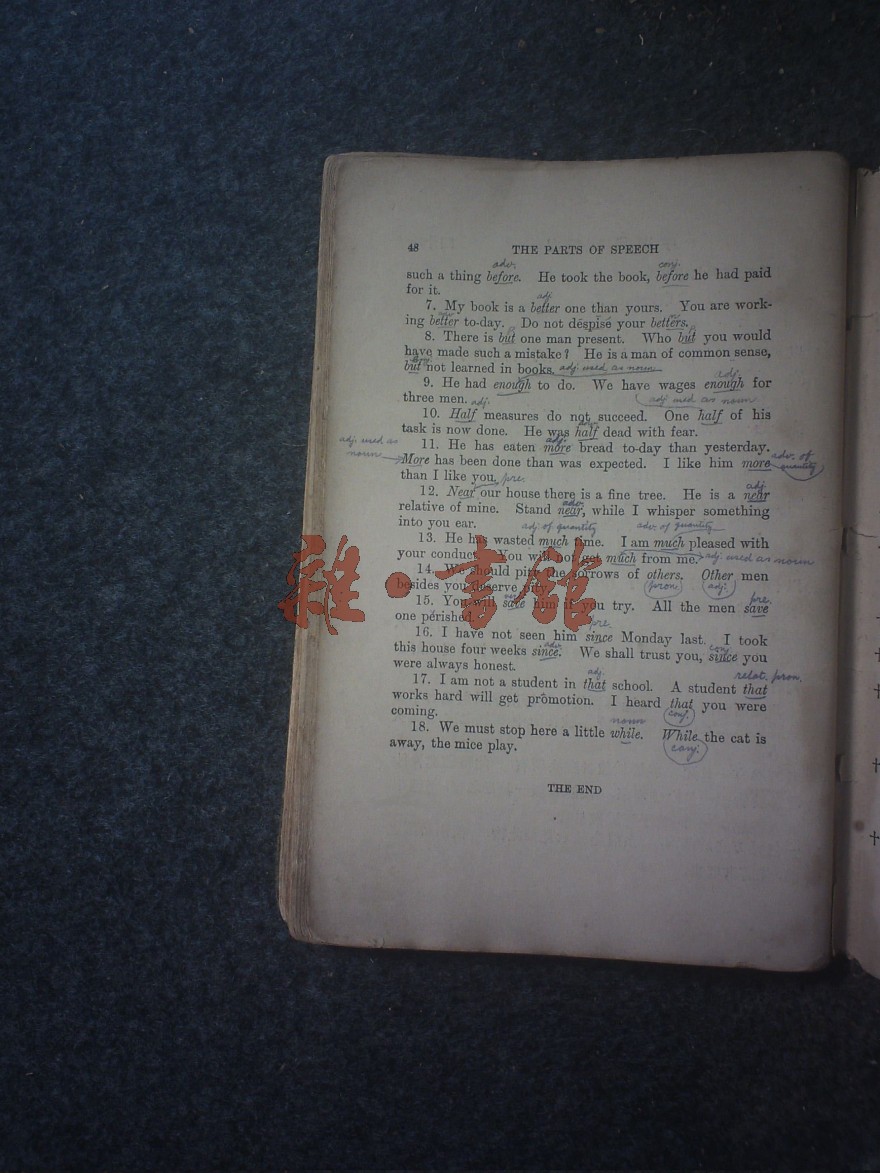 48 THE PARTS OF SPEECH
adv. conj.
such a thing before. He took the book, before he had paid
for it.
adj.
7. My book is a better one than yours. You are work-
ing better to-day. Do not despise your betters.
8. There is but one man present. Who but you would
have made such a mistake? He is a man of common sense,
but not learned in books. adj. used as noun
adj.
9. He had enough to do. We have wages enough for
three men. adj. adj used as noun
10. Half measures do not succeed. One half of his
task is now done. He was half dead with fear.
adj. used as
noun
adj.
11. He has eaten more bread to-day than yesterday.
More has been done than was expected. I like him more adv. of
quantity
than I like you. pre.
adj.
12. Near our house there is a fine tree. He is a near
adv.
relative of mine. Stand near, while I whisper something
into you ear. adj. of quantity adv. of quantity
13. He has wasted much time. I am much pleased with
your conduct. You will not get much from me. adj. used as noun
14. We should pity the sorrows of others. Other men
besides you deserve pity. pron. adj.
pre.
15. You will save him if you try. All the men save
one perished. pre.
16. I have not seen him since Monday last. I took
adv. conj.
this house four weeks since. We shall trust you, since you
were always honest.
adj. relat. pron.
17. I am not a student in that school. A student that
works hard will get promotion. I heard that you were
coming. conj.
noun
18. We must stop here a little while. While the cat is
away, the mice play. conj.
THE END
雜·書館